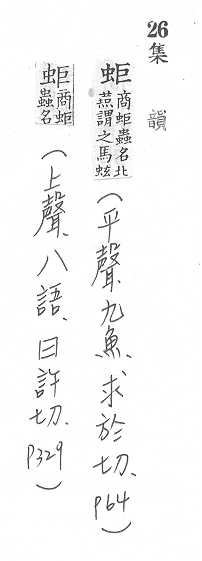 26集韻
蚷商蚷蟲名北燕謂之馬蚿(平聲、九魚、求於切、P64)
蚷商蚷蟲名(上聲、八語、臼許切、P329)